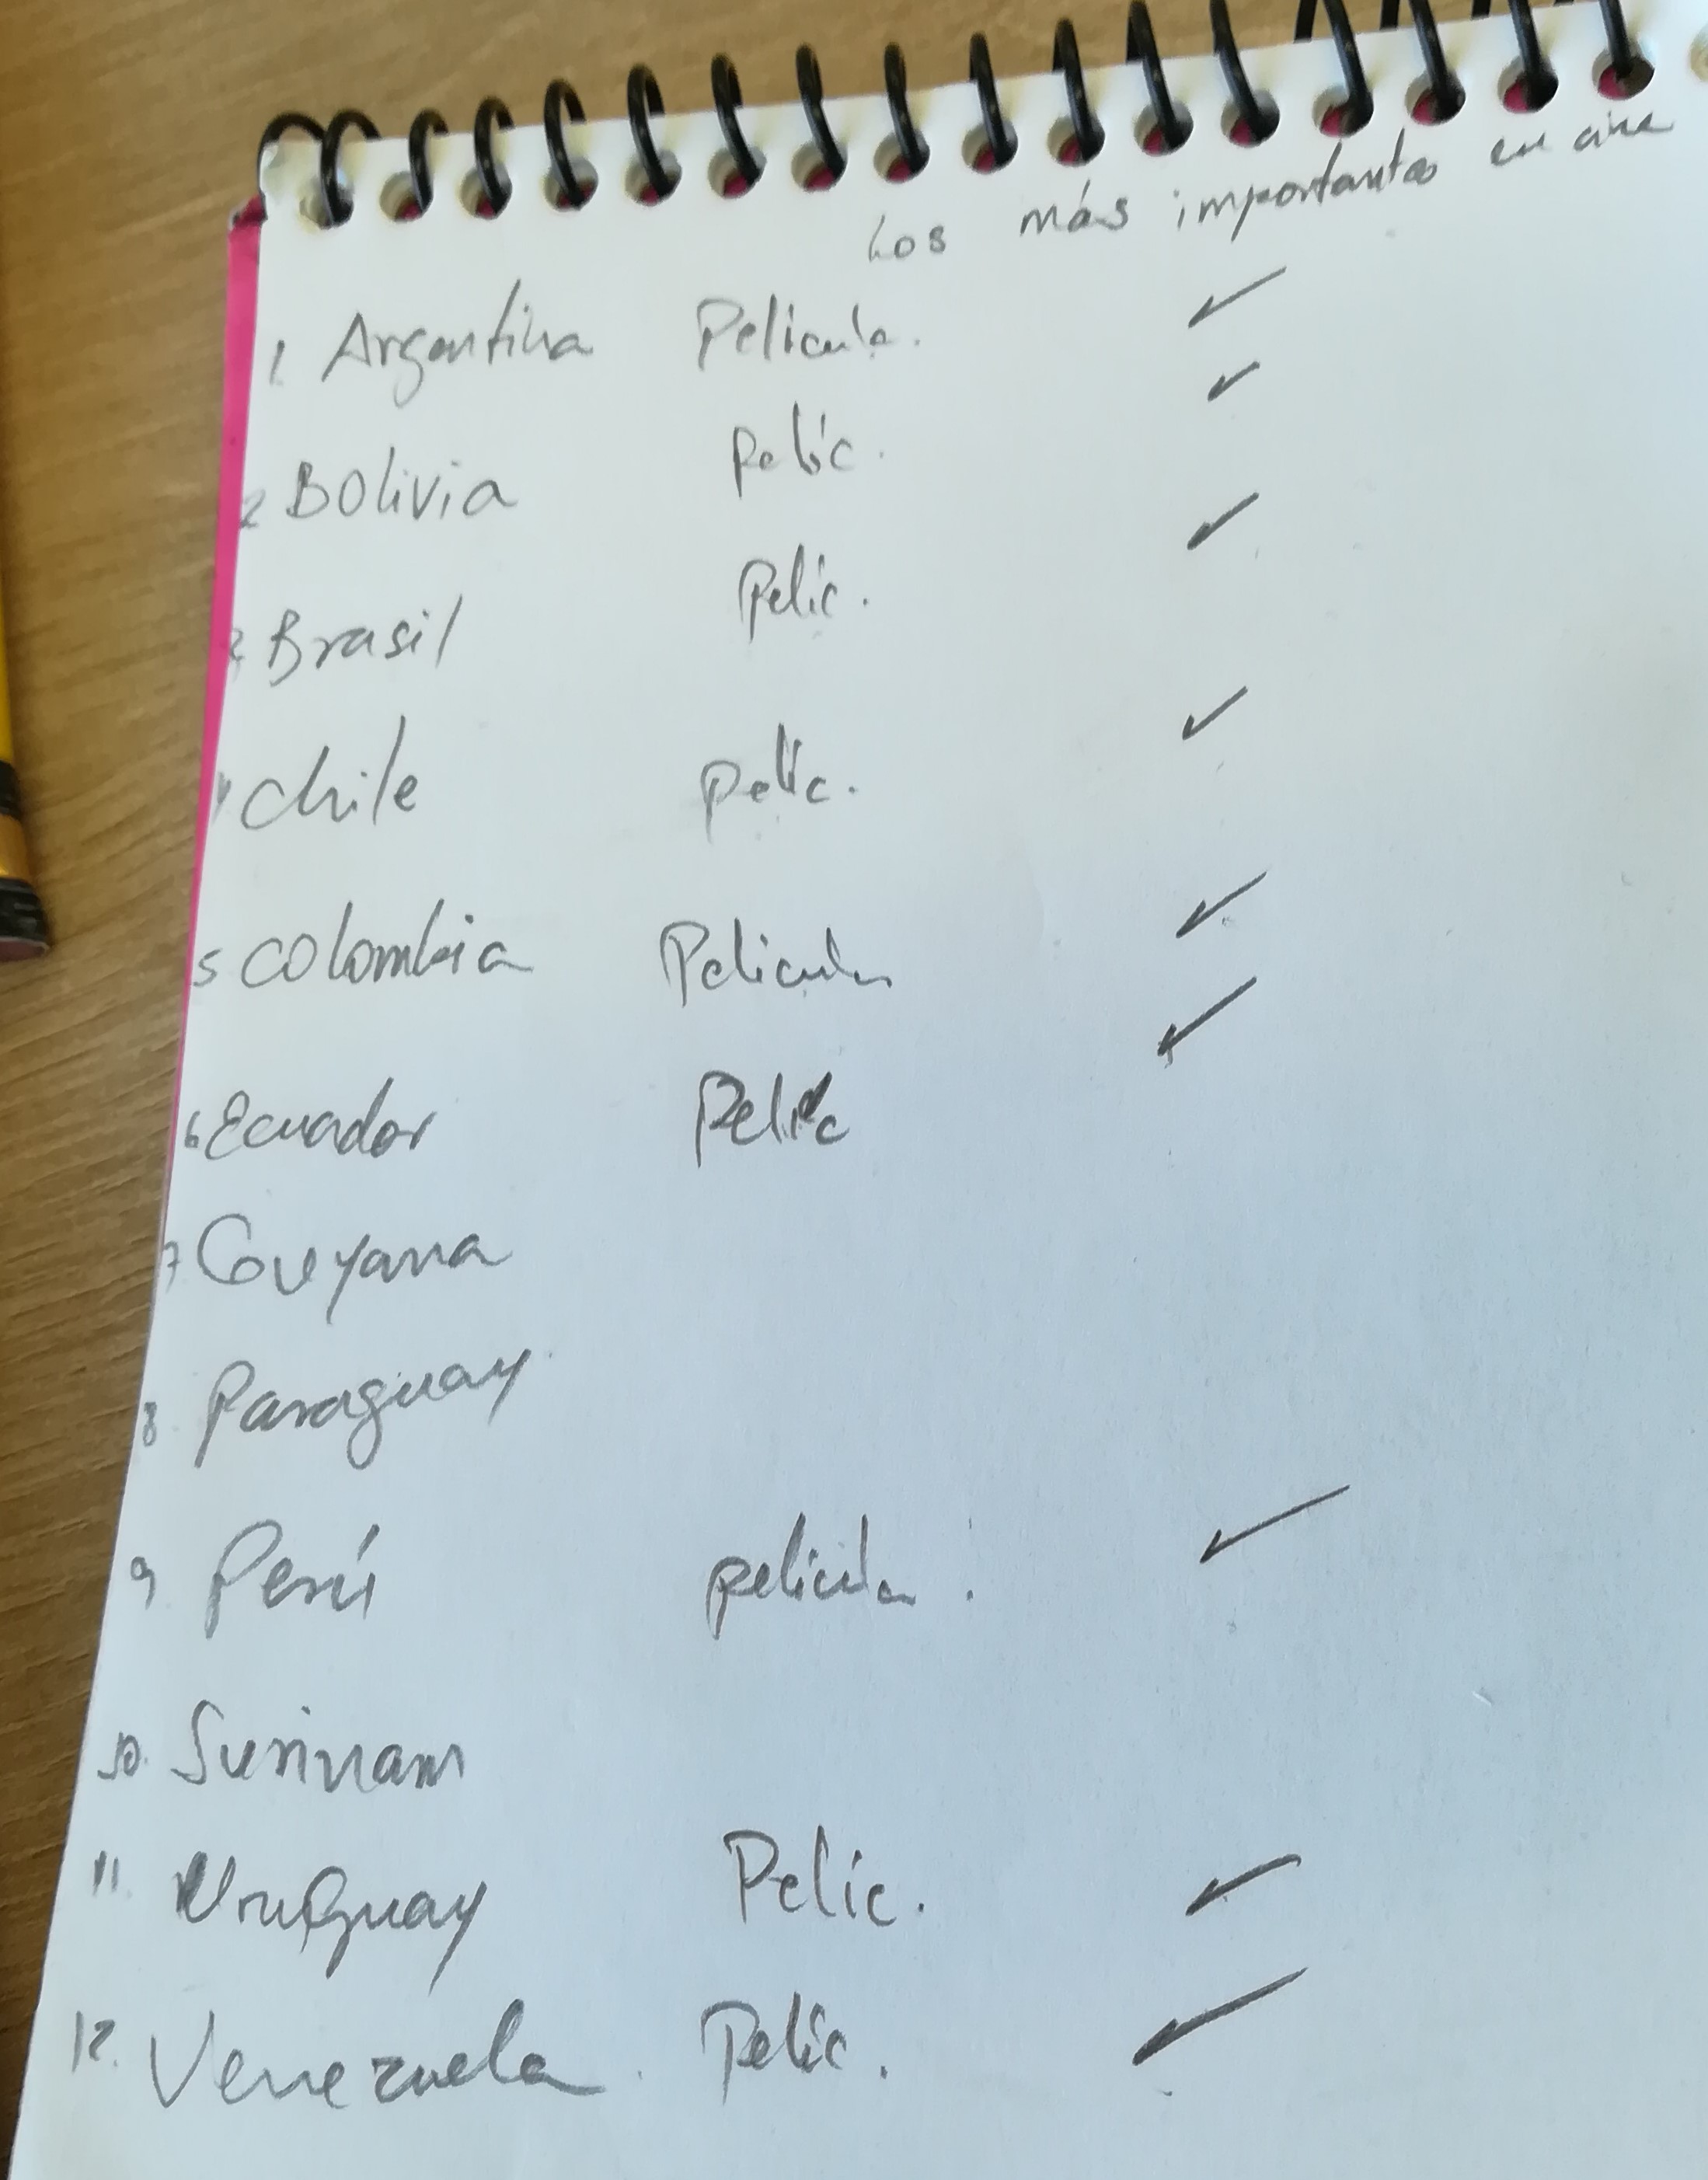 Los más importantes en cine
1. Argentina Pelicula. ✓
2 Bolivia Pelic. ✓
3 Brasil Pelic. ✓
4 Chile Pelic. ✓
5 Colombia Pelicula ✓
6 Ecuador Pelic ✓
7 Guyana
8. Paraguay.
9. Perú pelicula. ✓
10. Surinam
11. Uruguay Pelic. ✓
12. Venezuela. Pelic. ✓